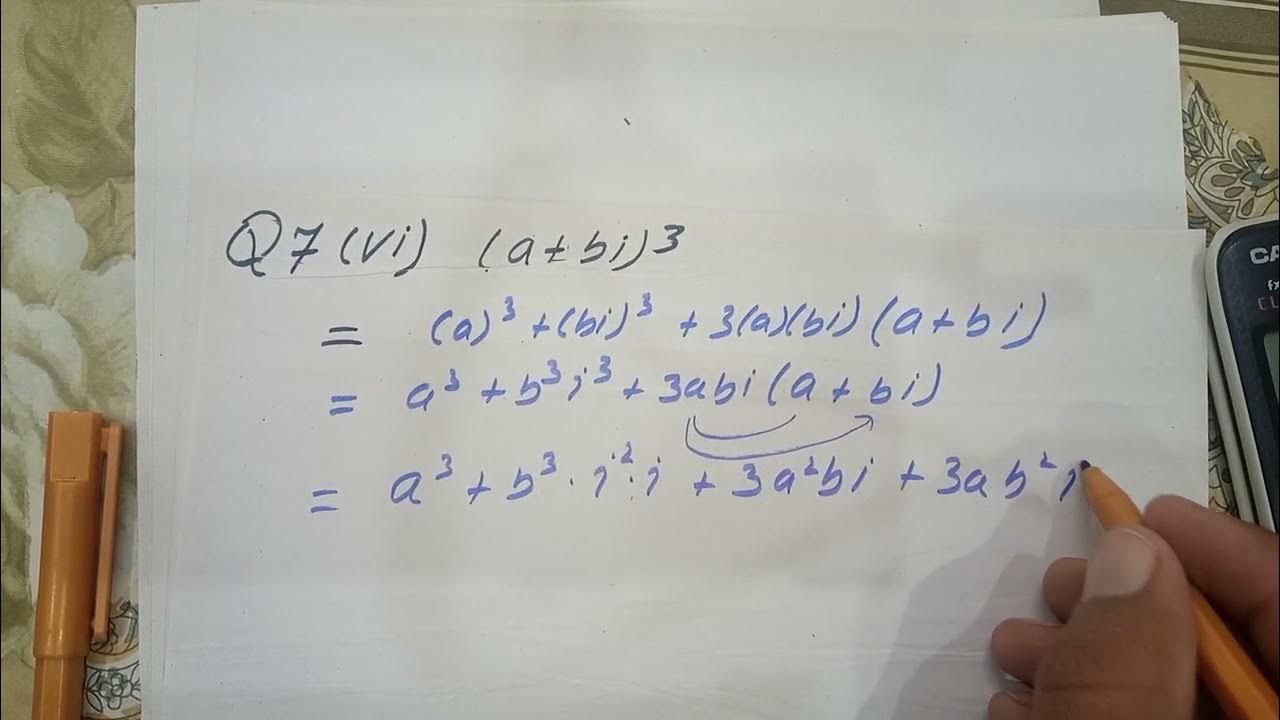 Q7 (vi) (a+bi)³
= (a)³ + (bi)³ + 3(a)(bi)(a+bi)
= a³ + b³i³ + 3abi(a+bi)
= a³ + b³ · i² · i + 3a²bi + 3ab²i
CA
fx
CL